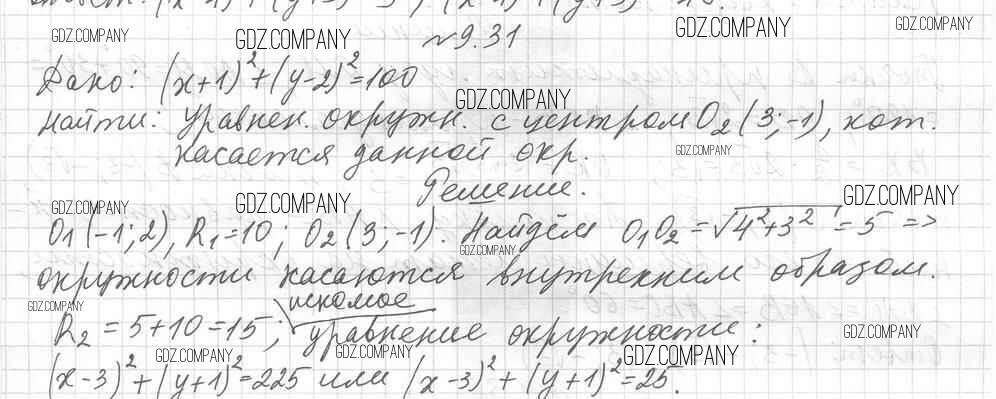 GDZ.COMPANY GDZ.COMPANY №9.31 GDZ.COMPANY GDZ.COMPANY
Дано: (x+1)²+(y-2)²=100
GDZ.COMPANY
Найти: Уравнен. окружн. с центром O₂(3;-1), кот.
касается данной окр. GDZ.COMPANY
Решение.
GDZ.COMPANY GDZ.COMPANY GDZ.COMPANY
O₁(-1;2), R₁=10; O₂(3;-1). Найдём O₁O₂=√4²+3²=5 =>
GDZ.COMPANY
окружности касаются внутренним образом.
GDZ.COMPANY искомое
R₂=5+10=15; уравнение окружности: GDZ.COMPANY
GDZ.COMPANY GDZ.COMPANY GDZ.COMPANY
(x-3)²+(y+1)²=225 или (x-3)²+(y+1)²=25.